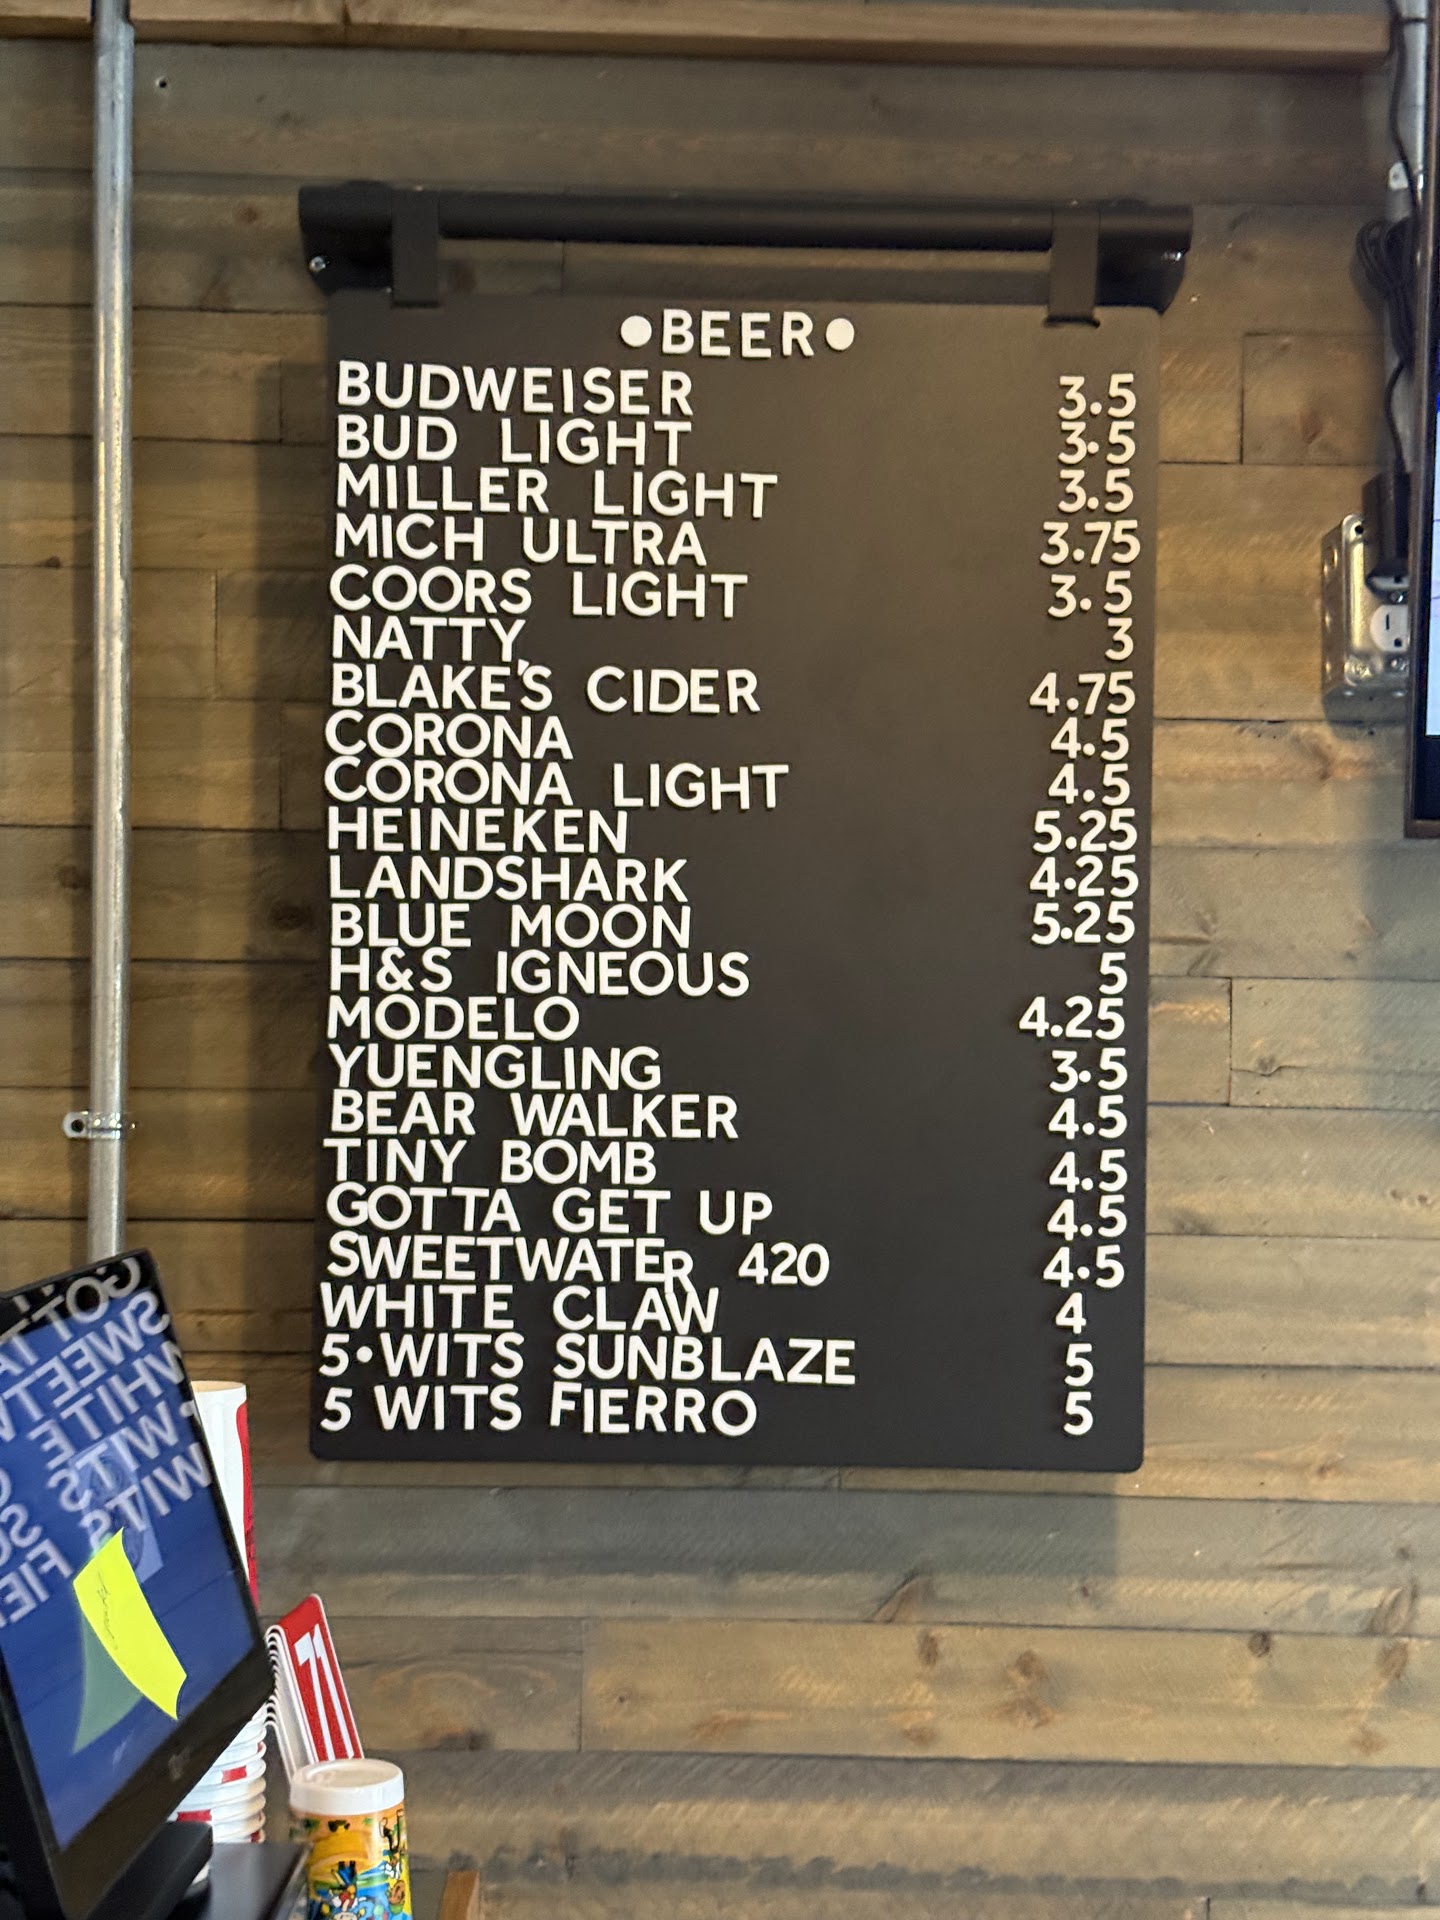 •BEER•
BUDWEISER 3.5
BUD LIGHT 3.5
MILLER LIGHT 3.5
MICH ULTRA 3.75
COORS LIGHT 3.5
NATTY 3
BLAKE'S CIDER 4.75
CORONA 4.5
CORONA LIGHT 4.5
HEINEKEN 5.25
LANDSHARK 4.25
BLUE MOON 5.25
H&S IGNEOUS 5
MODELO 4.25
YUENGLING 3.5
BEAR WALKER 4.5
TINY BOMB 4.5
GOTTA GET UP 4.5
SWEETWATER 420 4.5
WHITE CLAW 4
5•WITS SUNBLAZE 5
5 WITS FIERRO 5
71